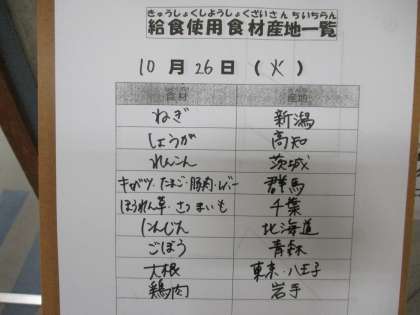 きゅうしょくしようしょくざいさんちいちらん
給食使用食材産地一覧
10月26日(火)
食材 産地
ねぎ 新潟
しょうが 高知
れんこん 茨城
キャベツ・たまご・豚肉・レバー 群馬
ほうれん草・さつまいも 千葉
にんじん 北海道
ごぼう 青森
大根 東京・八王子
鶏肉 岩手